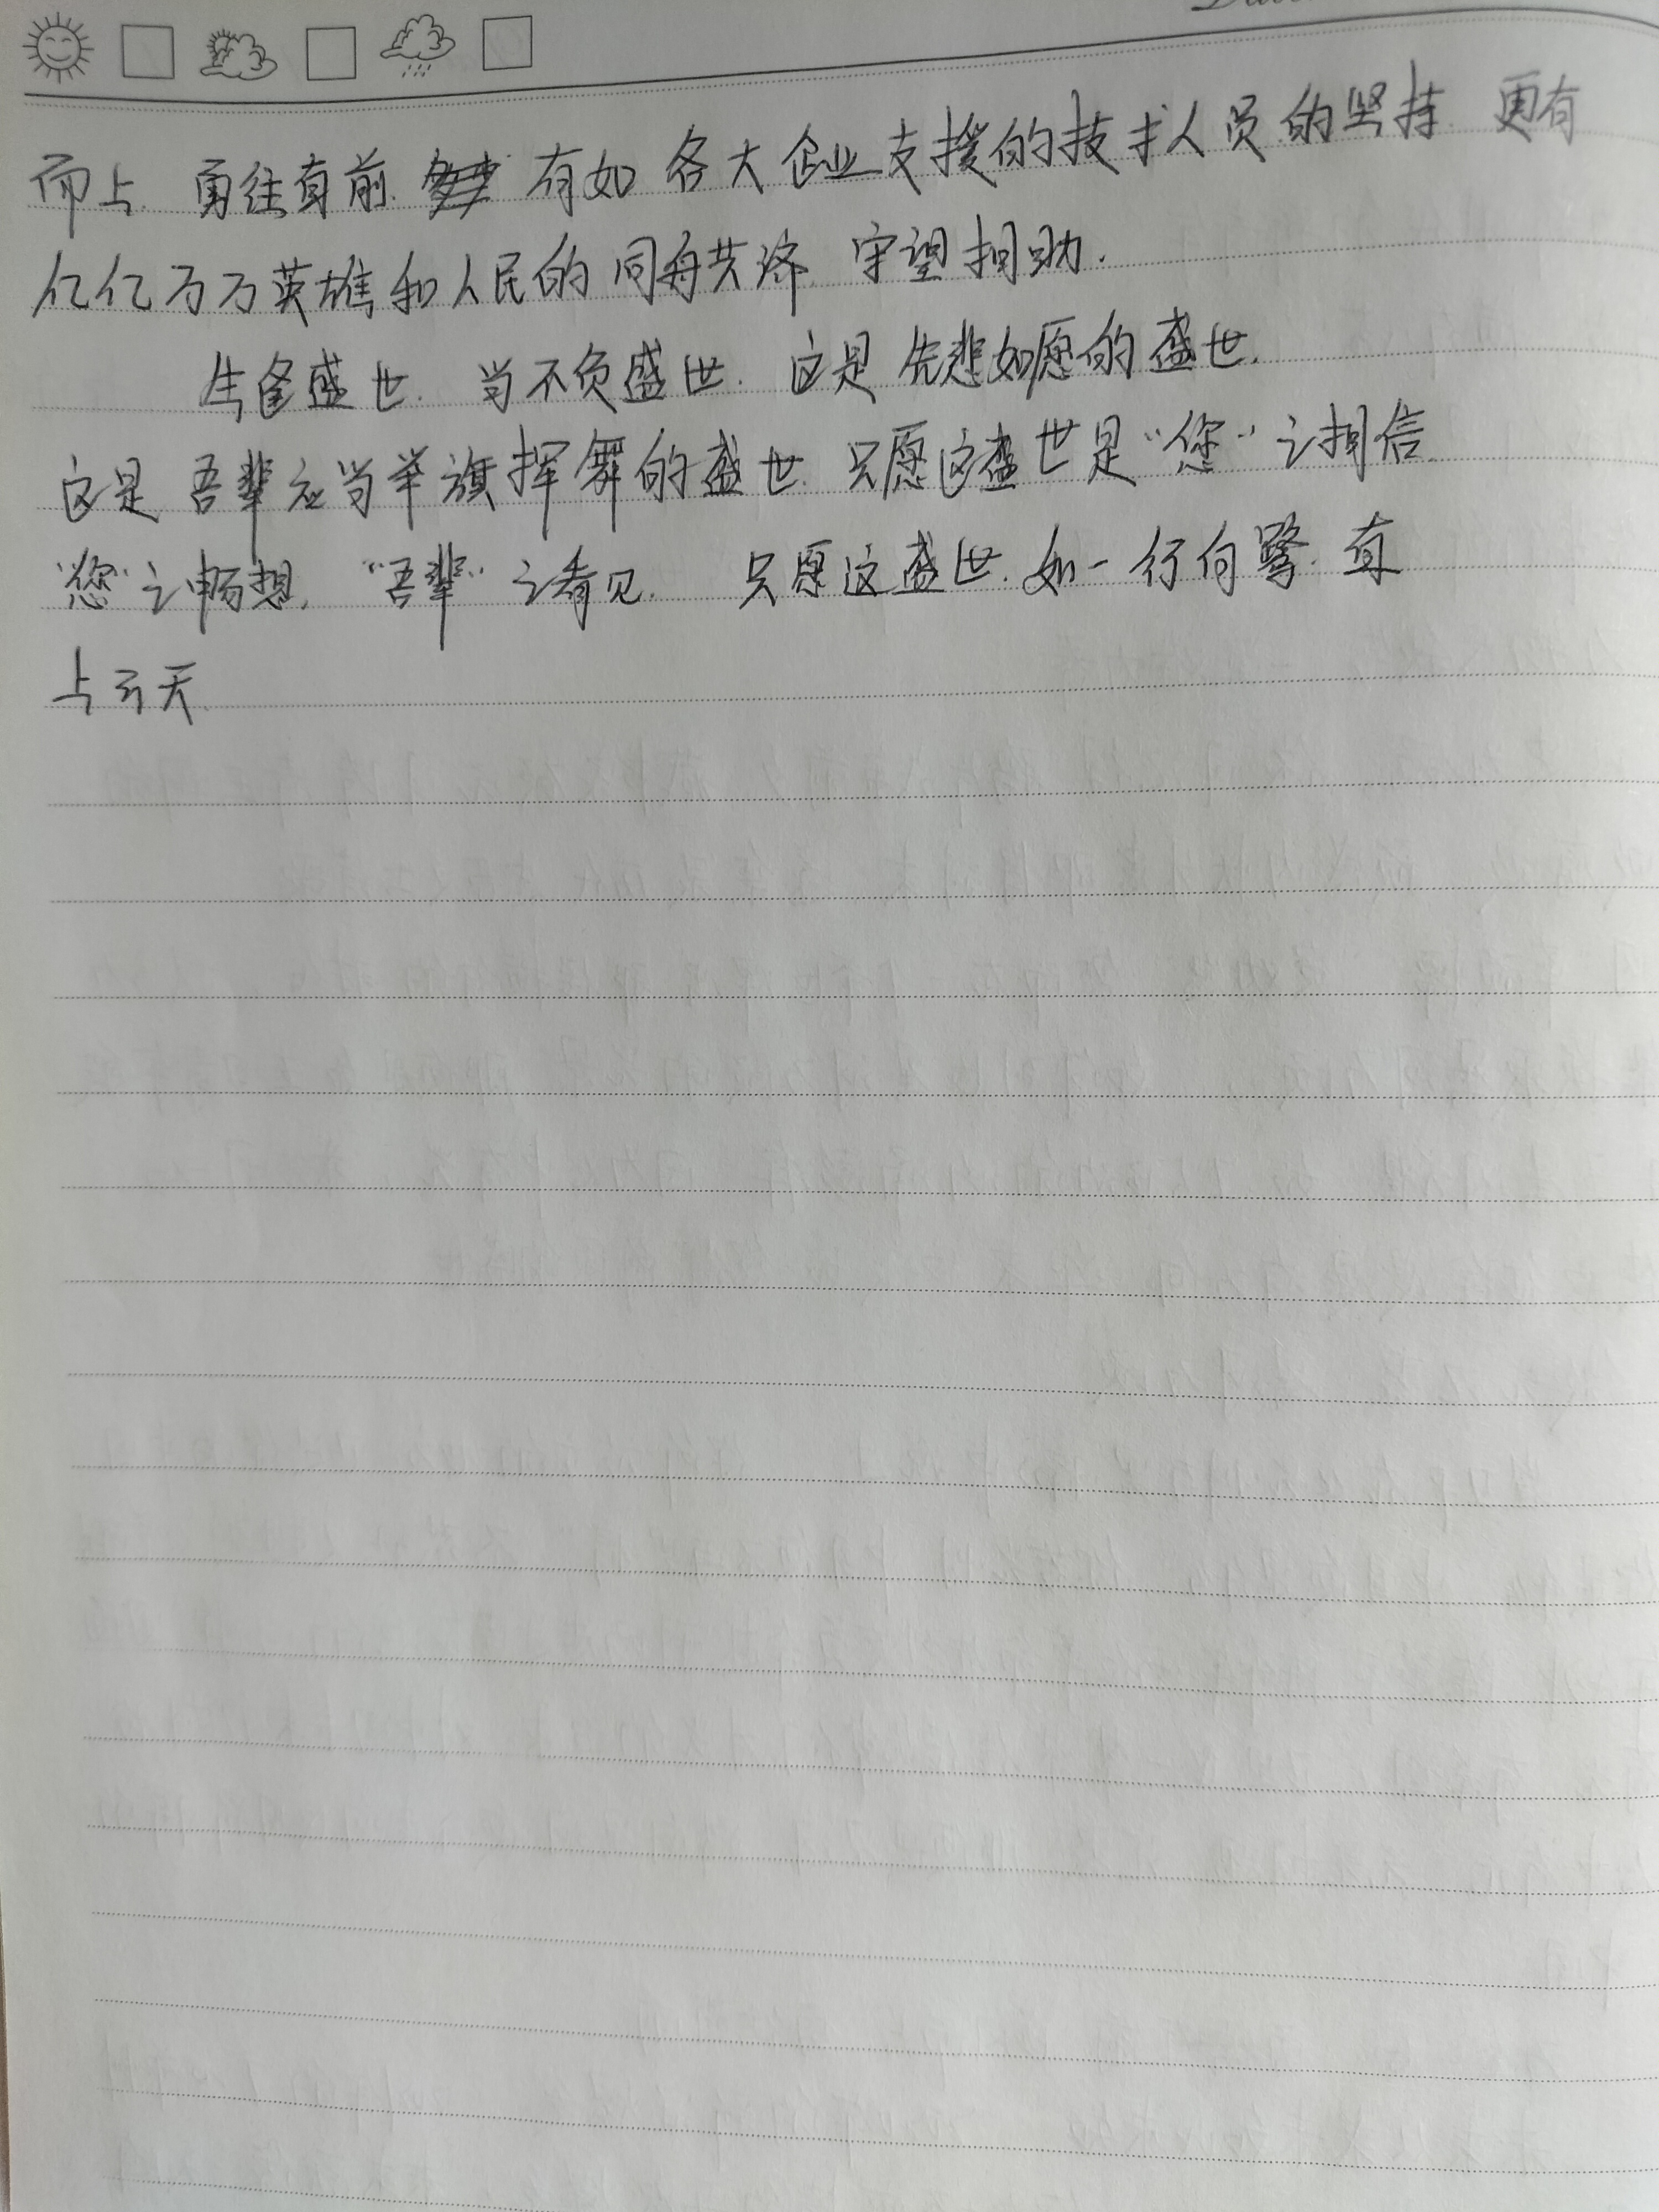 而上.勇往直前.有如各大企业支援的技术人员的坚持 更有
亿亿万万英雄和人民的同舟共济.守望相助.
生逢盛世.当不负盛世.这是先悲如愿的盛世.
这是吾辈应当举旗挥舞的盛世.只愿这盛世是“您”之相信.
“您”之畅想.“吾辈”之看见.只愿这盛世.如一行白鹭.直
上云天.